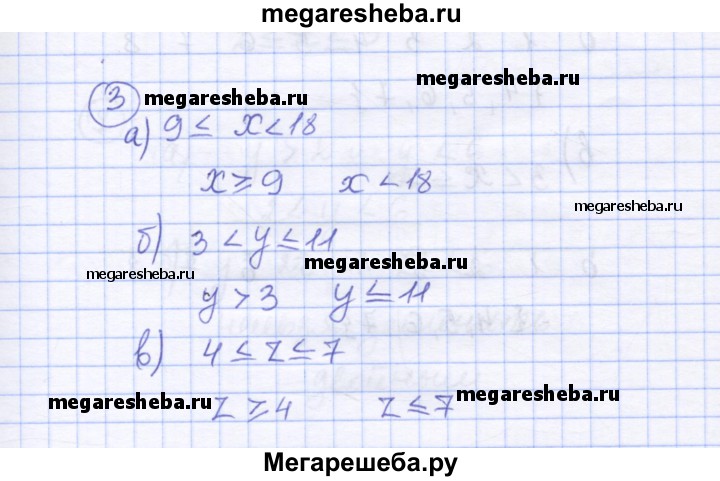 megaresheba.ru
megaresheba.ru
3 megaresheba.ru
а) 9 ≤ x < 18
x ≥ 9 x < 18
megaresheba.ru
б) 3 < y ≤ 11
megaresheba.ru
megaresheba.ru
y > 3 y ≤ 11
в) 4 ≤ z ≤ 7
megaresheba.ru
megaresheba.ru
z ≥ 4 z ≤ 7
Мегарешеба.ру